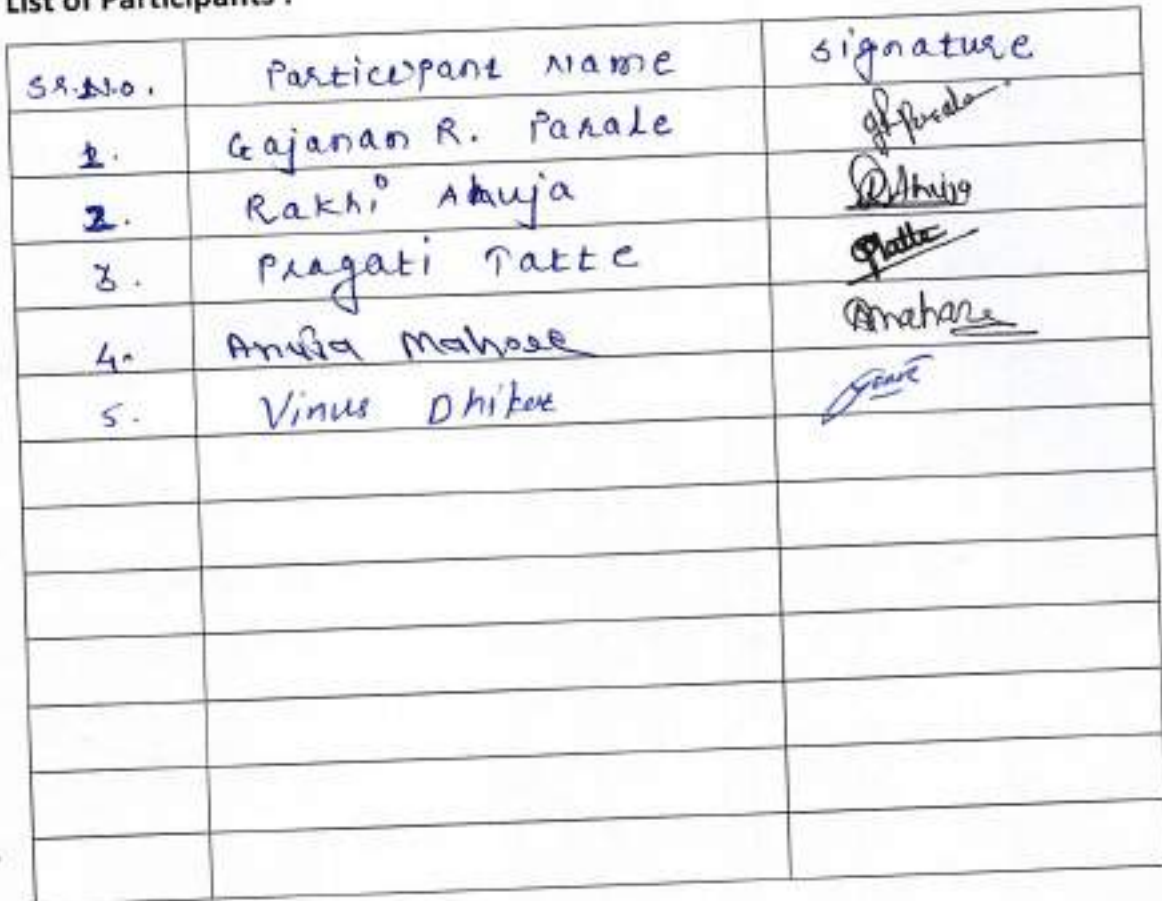 List of Participants :
Sr.No. Participant Name Signature
1. Gajanan R. Parale
2. Rakhi Ahuja RAhuja
3. Pragati Tatte PTatte
4. Mahore
5. Vinus